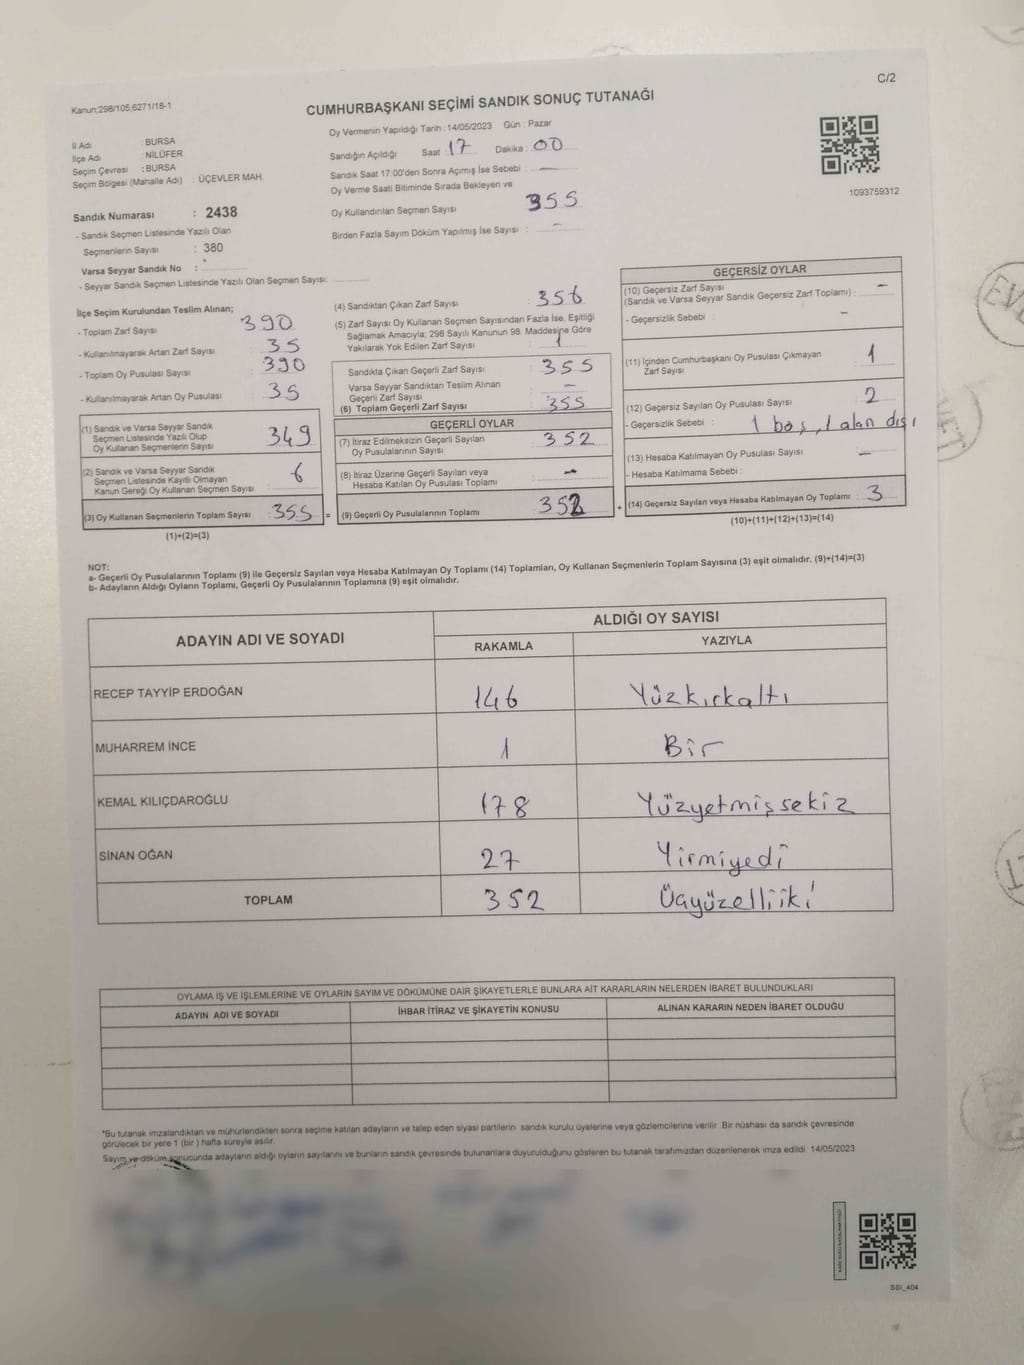 C/2
Kanun:298/105,6271/18-1
CUMHURBAŞKANI SEÇİMİ SANDIK SONUÇ TUTANAĞI
İl Adı : BURSA
İlçe Adı : NİLÜFER
Seçim Çevresi : BURSA
Seçim Bölgesi (Mahalle Adı) : ÜÇEVLER MAH.
Sandık Numarası : 2438
- Sandık Seçmen Listesinde Yazılı Olan
Seçmenlerin Sayısı : 380
Varsa Seyyar Sandık No :
- Seyyar Sandık Seçmen Listesinde Yazılı Olan Seçmen Sayısı:
Oy Vermenin Yapıldığı Tarih : 14/05/2023 Gün : Pazar
Sandığın Açıldığı Saat : 17 Dakika : 00
Sandık Saat 17:00'den Sonra Açımış İse Sebebi : —
Oy Verme Saati Bitiminde Sırada Bekleyen ve
Oy Kullandırılan Seçmen Sayısı 355
Birden Fazla Sayım Döküm Yapılmış İse Sayısı : —
1093759312
İlçe Seçim Kurulundan Teslim Alınan;
- Toplam Zarf Sayısı 390
- Kullanılmayarak Artan Zarf Sayısı 35
- Toplam Oy Pusulası Sayısı 390
- Kullanılmayarak Artan Oy Pusulası 35
(1) Sandık ve Varsa Seyyar Sandık
Seçmen Listesinde Yazılı Olup
Oy Kullanan Seçmenlerin Sayısı 349
(2) Sandık ve Varsa Seyyar Sandık
Seçmen Listesinde Kayıtlı Olmayan
Kanun Gereği Oy Kullanan Seçmen Sayısı 6
(3) Oy Kullanan Seçmenlerin Toplam Sayısı : 355 =
(1)+(2)=(3)
(4) Sandıktan Çıkan Zarf Sayısı : 356
(5) Zarf Sayısı Oy Kullanan Seçmen Sayısından Fazla İse, Eşitliği
Sağlamak Amacıyla; 298 Sayılı Kanunun 98. Maddesine Göre
Yakılarak Yok Edilen Zarf Sayısı : 1
Sandıkta Çıkan Geçerli Zarf Sayısı : 355
Varsa Seyyar Sandıktan Teslim Alınan
Geçerli Zarf Sayısı : —
(6) Toplam Geçerli Zarf Sayısı : 355
GEÇERLİ OYLAR
(7) İtiraz Edilmeksizin Geçerli Sayılan
Oy Pusulalarının Sayısı : 352
(8) İtiraz Üzerine Geçerli Sayılan veya
Hesaba Katılan Oy Pusulası Toplamı : —
(9) Geçerli Oy Pusulalarının Toplamı : 352 +
GEÇERSİZ OYLAR
(10) Geçersiz Zarf Sayısı
(Sandık ve Varsa Seyyar Sandık Geçersiz Zarf Toplamı) : —
- Geçersizlik Sebebi : —
(11) İçinden Cumhurbaşkanı Oy Pusulası Çıkmayan
Zarf Sayısı : 1
(12) Geçersiz Sayılan Oy Pusulası Sayısı : 2
- Geçersizlik Sebebi : 1 boş, 1 alan dışı
(13) Hesaba Katılmayan Oy Pusulası Sayısı : —
- Hesaba Katılmama Sebebi :
(14) Geçersiz Sayılan veya Hesaba Katılmayan Oy Toplamı : 3
(10)+(11)+(12)+(13)=(14)
NOT:
a- Geçerli Oy Pusulalarının Toplamı (9) ile Geçersiz Sayılan veya Hesaba Katılmayan Oy Toplamı (14) Toplamları, Oy Kullanan Seçmenlerin Toplam Sayısına (3) eşit olmalıdır. (9)+(14)=(3)
b- Adayların Aldığı Oyların Toplamı, Geçerli Oy Pusulalarının Toplamına (9) eşit olmalıdır.
ADAYIN ADI VE SOYADI ALDIĞI OY SAYISI
RAKAMLA YAZIYLA
RECEP TAYYİP ERDOĞAN 146 Yüzkırkaltı
MUHARREM İNCE 1 Bir
KEMAL KILIÇDAROĞLU 178 Yüzyetmişsekiz
SİNAN OĞAN 27 Yirmiyedi
TOPLAM 352 Üçyüzelliiki
OYLAMA İŞ VE İŞLEMLERİNE VE OYLARIN SAYIM VE DÖKÜMÜNE DAİR ŞİKAYETLERLE BUNLARA AİT KARARLARIN NELERDEN İBARET BULUNDUKLARI
ADAYIN ADI VE SOYADI İHBAR İTİRAZ VE ŞİKAYETİN KONUSU ALINAN KARARIN NEDEN İBARET OLDUĞU
*Bu tutanak imzalandıktan ve mühürlendikten sonra seçime katılan adayların ve talep eden siyasi partilerin sandık kurulu üyelerine veya gözlemcilerine verilir. Bir nüshası da sandık çevresinde
görülecek bir yere 1 (bir) hafta süreyle asılır.
Sayım ve döküm sonucunda adayların aldığı oyların sayılarını ve bunların sandık çevresinde bulunanlara duyurulduğunu gösteren bu tutanak tarafımızdan düzenlenerek imza edildi. 14/05/2023
SSI_404